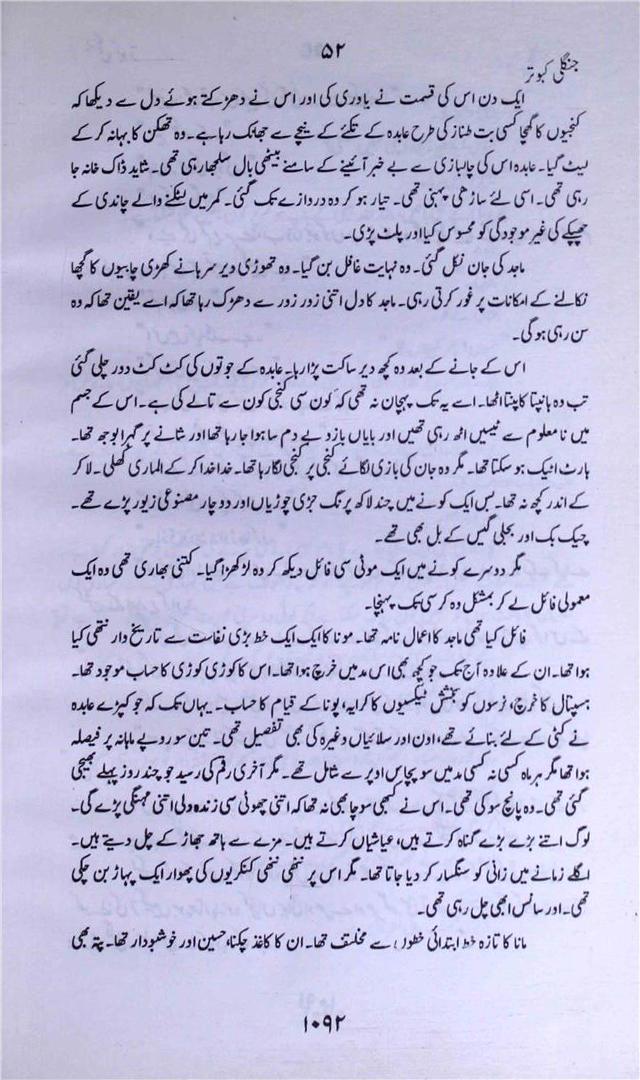 ۵۲
جنگلی کبوتر
ایک دن اس کی قسمت نے یاوری کی اور اس نے دھڑکتے ہوئے دل سے دیکھا کہ
کنجیوں کا گچھا کسی بت طناز کی طرح عابدہ کے تکئے کے نیچے سے جھانک رہا ہے۔ وہ تھکن کا بہانہ کر کے
لیٹ گیا۔ عابدہ اس کی چالبازی سے بے خبر آئینے کے سامنے بیٹھی بال سلجھا رہی تھی۔ شاید ڈاک خانہ جا
رہی تھی۔ اسی لئے ساڑھی پہنی تھی۔ تیار ہو کر وہ دروازے تک گئی۔ کمر میں لٹکنے والے چاندی کے
چھپکے کی غیر موجودگی کو محسوس کیا اور پلٹ پڑی۔
ماجد کی جان نکل گئی۔ وہ نہایت غافل بن گیا۔ وہ تھوڑی دیر سرہانے کھڑی چابیوں کا گچھا
نکالنے کے امکانات پر غور کرتی رہی۔ ماجد کا دل اتنی زور زور سے دھڑک رہا تھا کہ اسے یقین تھا کہ وہ
سن رہی ہو گی۔
اس کے جانے کے بعد وہ کچھ دیر ساکت پڑا رہا۔ عابدہ کے جوتوں کی کٹ کٹ دور چلی گئی
تب وہ ہانپتا کانپتا اٹھا۔ اسے یہ تک پہچان نہ تھی کہ کون سی کنجی کون سے تالے کی ہے۔ اس کے جسم
میں نا معلوم سے ٹیسیں اٹھ رہی تھیں اور بایاں بازو بے دم سا ہوا جا رہا تھا اور شانے پر گہرا بوجھ تھا۔
ہارٹ اٹیک ہو سکتا تھا۔ مگر وہ جان کی بازی لگائے کنجی پر کنجی لگا رہا تھا۔ خدا خدا کر کے الماری کھلی۔ لاکر
کے اندر کچھ نہ تھا۔ بس ایک کونے میں چند لاکھ پر نگ جڑی چوڑیاں اور دو چار مصنوعی زیور پڑے تھے۔
چیک بک اور بجلی گیس کے بل بھی تھے۔
مگر دوسرے کونے میں ایک موٹی سی فائل دیکھ کر وہ لڑکھڑا گیا۔ کتنی بھاری تھی وہ ایک
معمولی فائل لے کر بمشکل وہ کرسی تک پہنچا۔
فائل کیا تھی ماجد کا اعمال نامہ تھا۔ مونا کا ایک ایک خط بڑی نفاست سے تاریخ وار نتھی کیا
ہوا تھا۔ ان کے علاوہ آج تک جو کچھ بھی اس مد میں خرچ ہوا تھا۔ اس کا کوڑی کوڑی کا حساب موجود تھا۔
ہسپتال کا خرچ، نرسوں کو بخشش ٹیکسیوں کا کرایہ، پونا کے قیام کا حساب۔ یہاں تک کہ جو کپڑے عابدہ
نے کئی کے لئے بنائے تھے، اون اور سلائیاں وغیرہ کی بھی تفصیل تھی۔ تین سو روپے ماہانہ پر فیصلہ
ہوا تھا مگر ہر ماہ کسی نہ کسی مد میں سو پچاس اوپر سے شامل تھے۔ مگر آخری رقم کی رسید جو چند روز پہلے بھیجی
گئی تھی۔ وہ پانچ سو کی تھی۔ اس نے کبھی سوچا بھی نہ تھا کہ اتنی چھوٹی سی زندہ ولی اتنی مہنگی پڑے گی۔
لوگ اتنے بڑے بڑے گناہ کرتے ہیں، عیاشیاں کرتے ہیں۔ مزے سے ہاتھ جھاڑ کے چل دیتے ہیں۔
اگلے زمانے میں زانی کو سنگسار کر دیا جاتا تھا۔ مگر اس پر ننھی ننھی کنکریوں کی پھوار ایک پہاڑ بن چکی
تھی۔ اور سانس ابھی چل رہی تھی۔
مانا کا تازہ خط ابتدائی خطوں سے مختلف تھا۔ ان کا کاغذ چکنا، حسین اور خوشبودار تھا۔ پتہ بھی
۱۰۹۲